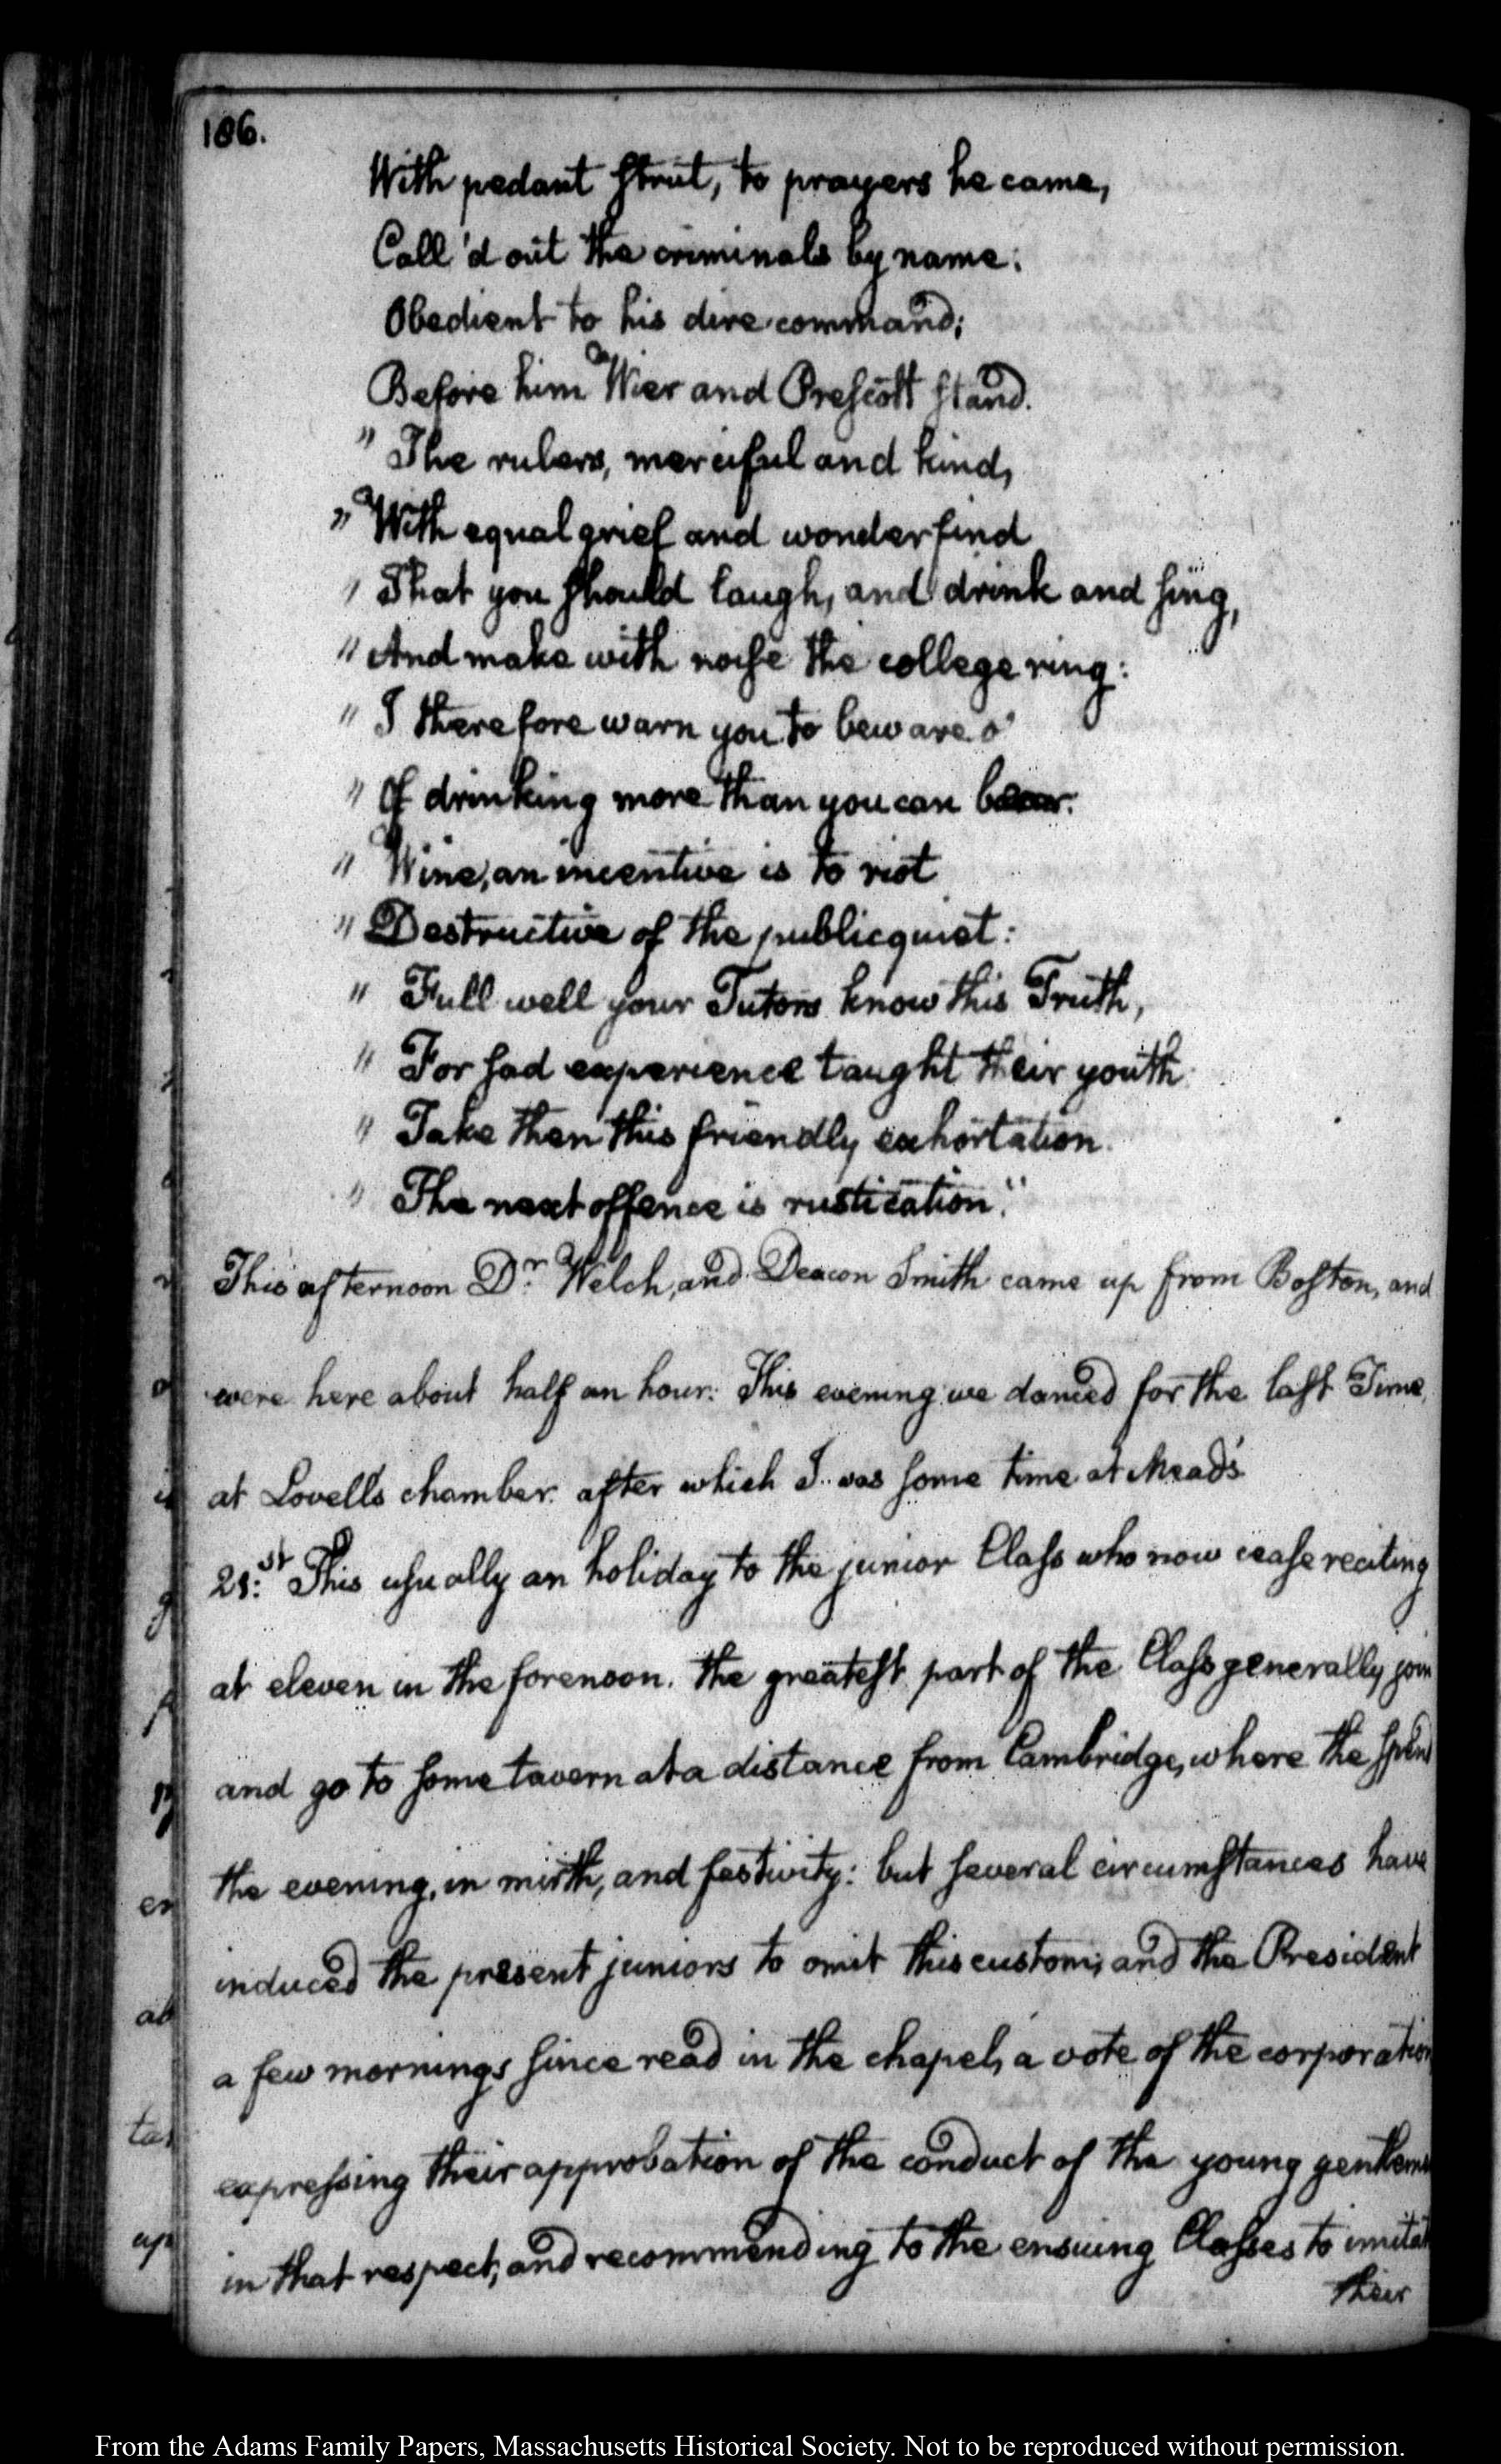 186.
With pedant strut, to prayers he came,
Call'd out the criminals by name:
Obedient to his dire command;
Before him Wier and Prescott stand.
" The rulers, merciful and kind,
" With equal grief and wonder find
" That you should laugh, and drink and sing,
" And make with noise the college ring:
" I therefore warn you to beware
" Of drinking more than you can bear.
" Wine, an incentive is to riot
" Destructive of the public quiet:
" Full well your Tutors know this Truth,
" For sad experience taught their youth.
" Take then this friendly exhortation.
" The next offence is rustication."
This afternoon Dr. Welch, and Deacon Smith came up from Boston, and
were here about half an hour. This evening we danced for the last Time,
at Lovell's chamber. after which I was some time at Mead's.
21:st This usually an holiday to the junior Class who now cease reciting
at eleven in the forenoon. the greatest part of the Class generally, join
and go to some tavern at a distance from Cambridge, where the spend
the evening, in mirth, and festivity: but several circumstances have
induced the present juniors to omit this custom; and the President
a few mornings since read in the chapel, a vote of the corporation
expressing their approbation of the conduct of the young gentlemen
in that respect; and recommending to the ensuing Classes to imitate
their
er
ab
tas
up
From the Adams Family Papers, Massachusetts Historical Society. Not to be reproduced without permission.